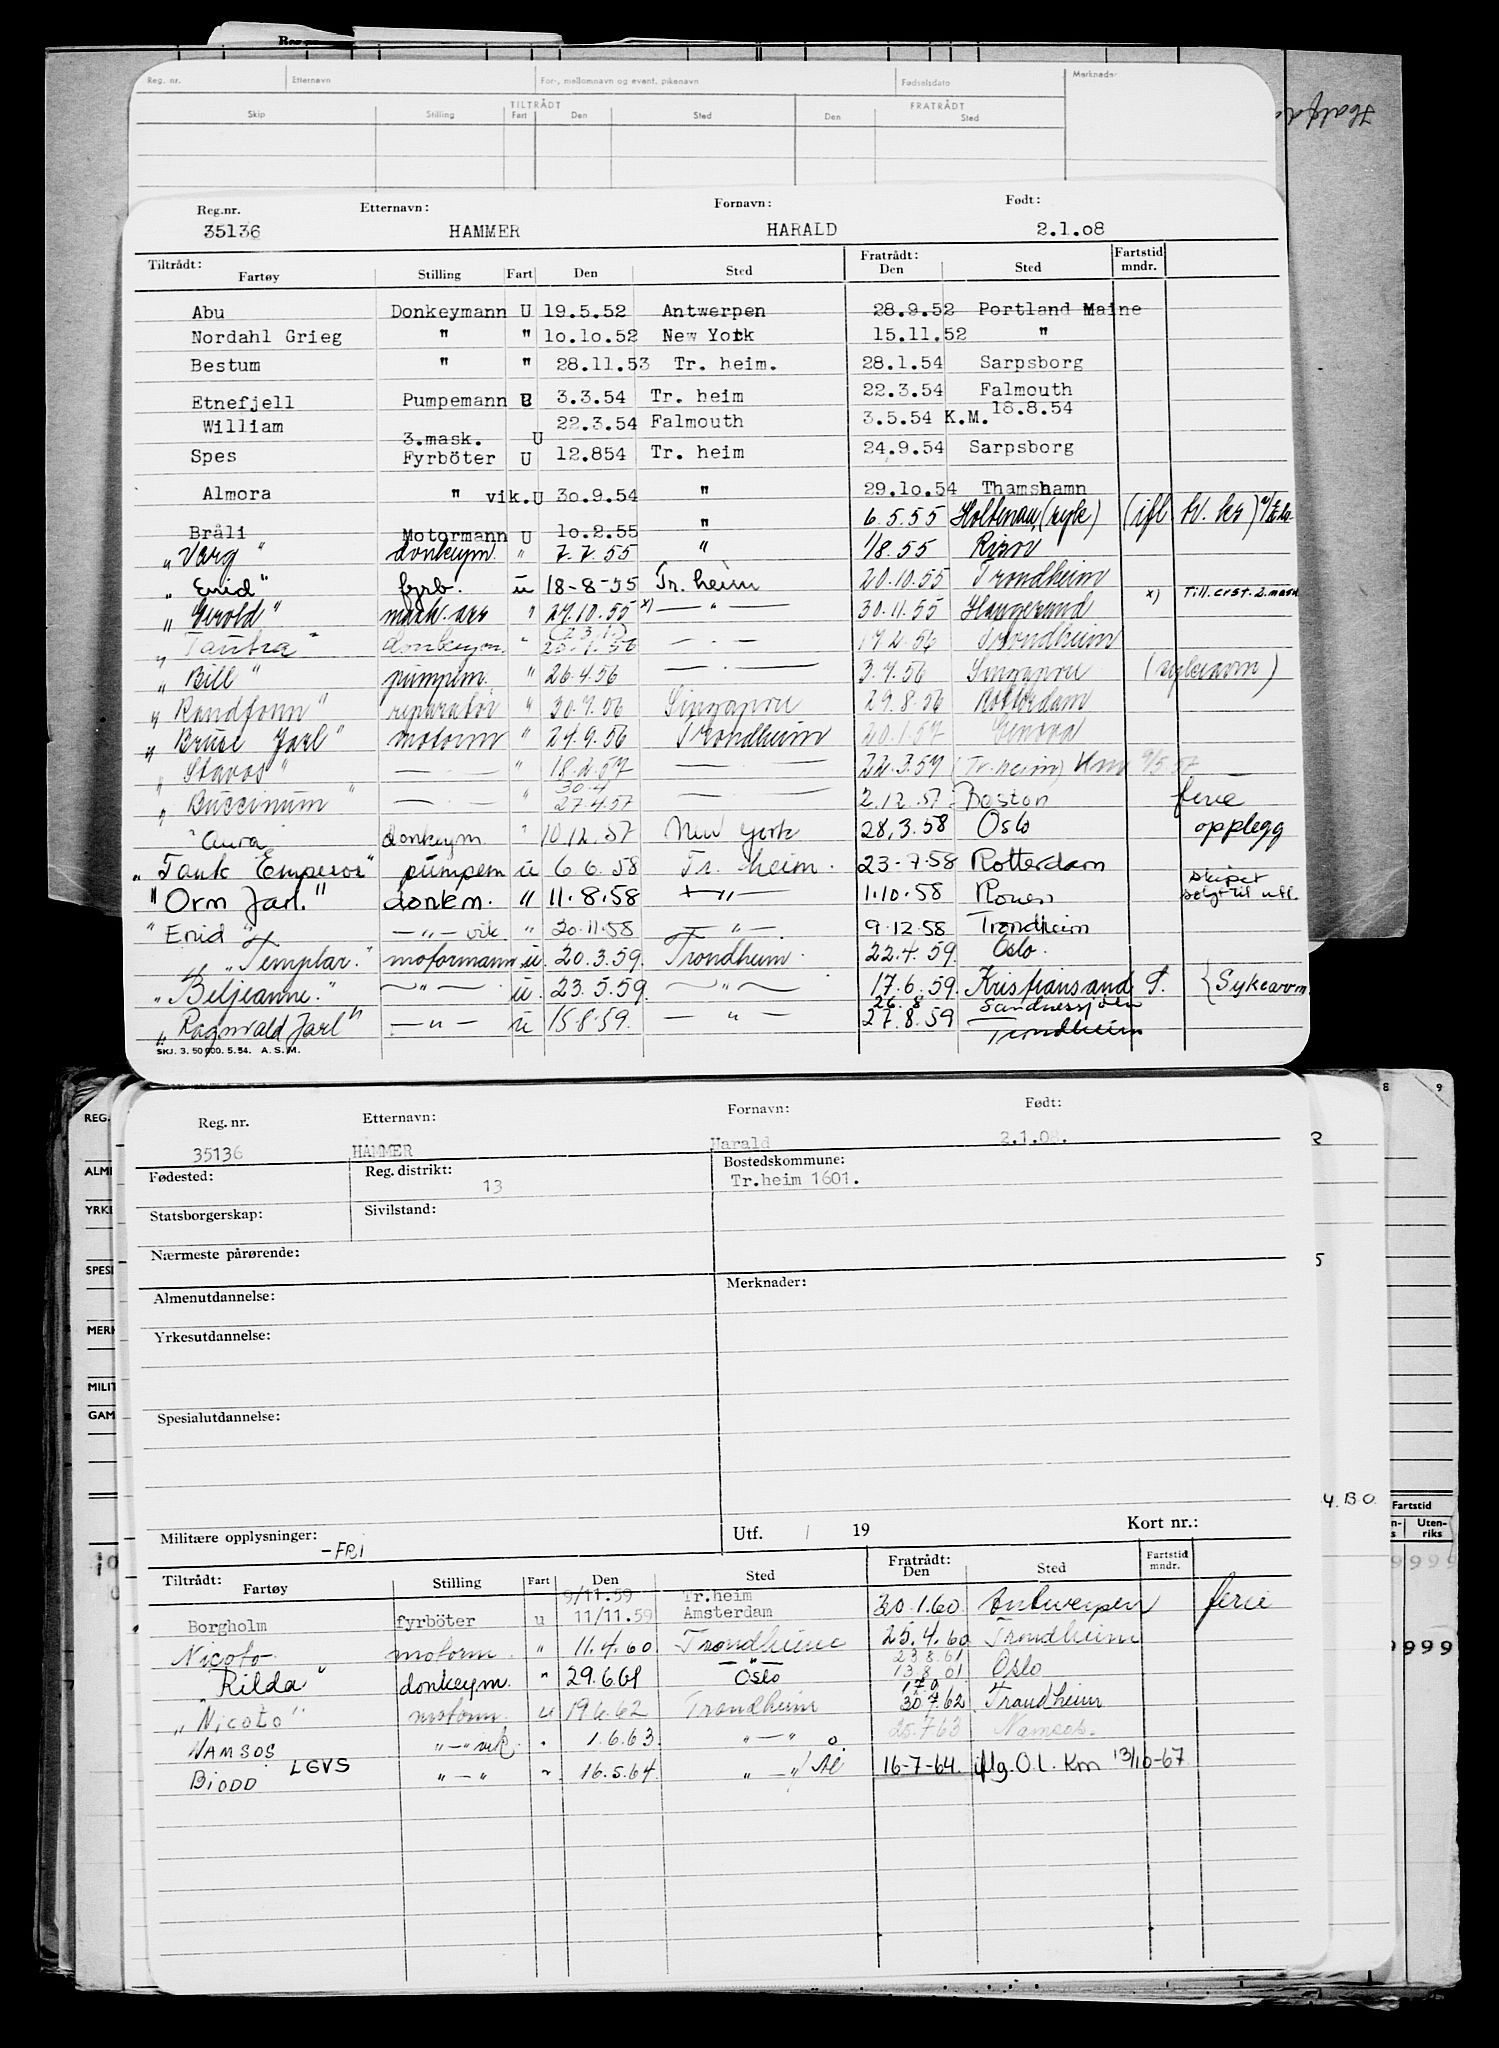 Reg. nr. Etternavn For-, mellomnavn og event. pikenavn Fødselsdato Merknader
TILTRÅDT FRATRÅDT
Skip Stilling Fart Den Sted Den Sted
Reg.nr. Etternavn: Fornavn: Født:
35136 HAMMER HARALD 2.1.08
Tiltrådt: Fratrådt: Fartstid
Fartøy Stilling Fart Den Sted Den Sted mndr.
Abu Donkeymann U 19.5.52 Antwerpen 28.9.52 Portland Maine
Nordahl Grieg " " 10.10.52 New York 15.11.52 "
Bestum " " 28.11.53 Tr. heim. 28.1.54 Sarpsborg
Etnefjell Pumpemann U 3.3.54 Tr. heim 22.3.54 Falmouth
William 3.mask. U 22.3.54 Falmouth 3.5.54 K.M. 18.8.54
Spes Fyrböter U 12.854 Tr. heim 24.9.54 Sarpsborg
Almora " vik. U 30.9.54 " 29.10.54 Thamshamn
Bråli Motormann U 10.2.55 " 6.5.55 Holtenau (syk)
"Varg" donkeym. " 7.7.55 " 1/8.55 Risør
"Enid" fyrb. u 18-8-55 Tr. heim 20.10.55 Trondheim
"Gerold" mask. ass " 27.10.55 x) — " — 30.11.55 Haugesund x) Till. erst. 2. mask
"Tautra" donkeym. " — . — 17.2.56 Trondheim
"Bill" pumpem. " 26.4.56 — . — 3.7.56 Singapore (sykeavm)
"Randfonn" reparatør " 30.7.56 Singapore 29.8.56 Rotterdam
"Bruse Jarl" motorm " 27.9.56 Trondheim 20.1.57 Genova
"Stavos" — . — " 18.2.57 — . — 22.3.57 (Tr.heim) Km 9/5.57
"Buccinum" — . — " 30.4 27.4.57 — . — 2.12.57 Boston ferie
"Aura donkeym " 10.12.57 New York 28.3.58 Oslo opplegg
"Tank Emperor" pumpem u 6.6.58 Tr. heim. 23-7.58 Rotterdam
"Orm Jarl." donkm. " 11.8.58 — " — 1.10.58 Rouen skipet solgt til utl.
"Enid" — " — vik " 20.11.58 — " — 9.12.58 Trondheim
"Templar." motormann u. 20.3.59. Trondheim. 22.4.59. Oslo.
"Beljeanne." — " — u. 23.5.59. — " — 17.6.59. Kristiansand S. {Sykeavm.
"Ragnvald Jarl" — " — u 15.8.59. — " — 26.8 27.8.59 Sandnessjøen Trondheim
SKJ. 3. 50 000. 5. 54. A. S. M.
Reg. nr. Etternavn: Fornavn: Født:
35136 HAMMER Harald 2.1.08.
Fødested: Reg. distrikt: 13 Bostedskommune: Tr.heim 1601.
Statsborgerskap: Sivilstand:
Nærmeste pårørende:
Almenutdannelse: Merknader:
Yrkesutdannelse:
Spesialutdannelse:
Militære opplysninger: -FRI Utf. / 19 Kort nr.:
Tiltrådt: Fratrådt: Fartstid
Fartøy Stilling Fart Den Sted Den Sted mndr.
9/11.59 Tr.heim
Borgholm fyrböter u 11/11.59 Amsterdam 30.1.60. Antwerpen ferie
Nicoto motorm. " 11.4.60 Trondheim 25.4.60 Trondheim
"Rilda" donkeym. " 29.6.61 Oslo 23.8.61 13.8.61 Oslo
"Nicoto" motorm. u 19.6.62 Trondheim 30.7.62 Trondheim
NAMSOS " — " vik. " 1.6.63. " — " 25.7.63 Namsos.
BIODD LGVS " — " " 16.5.64. " — " 16-7-64. iflg. O.l. Km 13/10-67
REG.
ALM
YRKE
SPESI
MERK
MILIT
GAM
8 9
Fartstid
Uten-
riks
9999
999